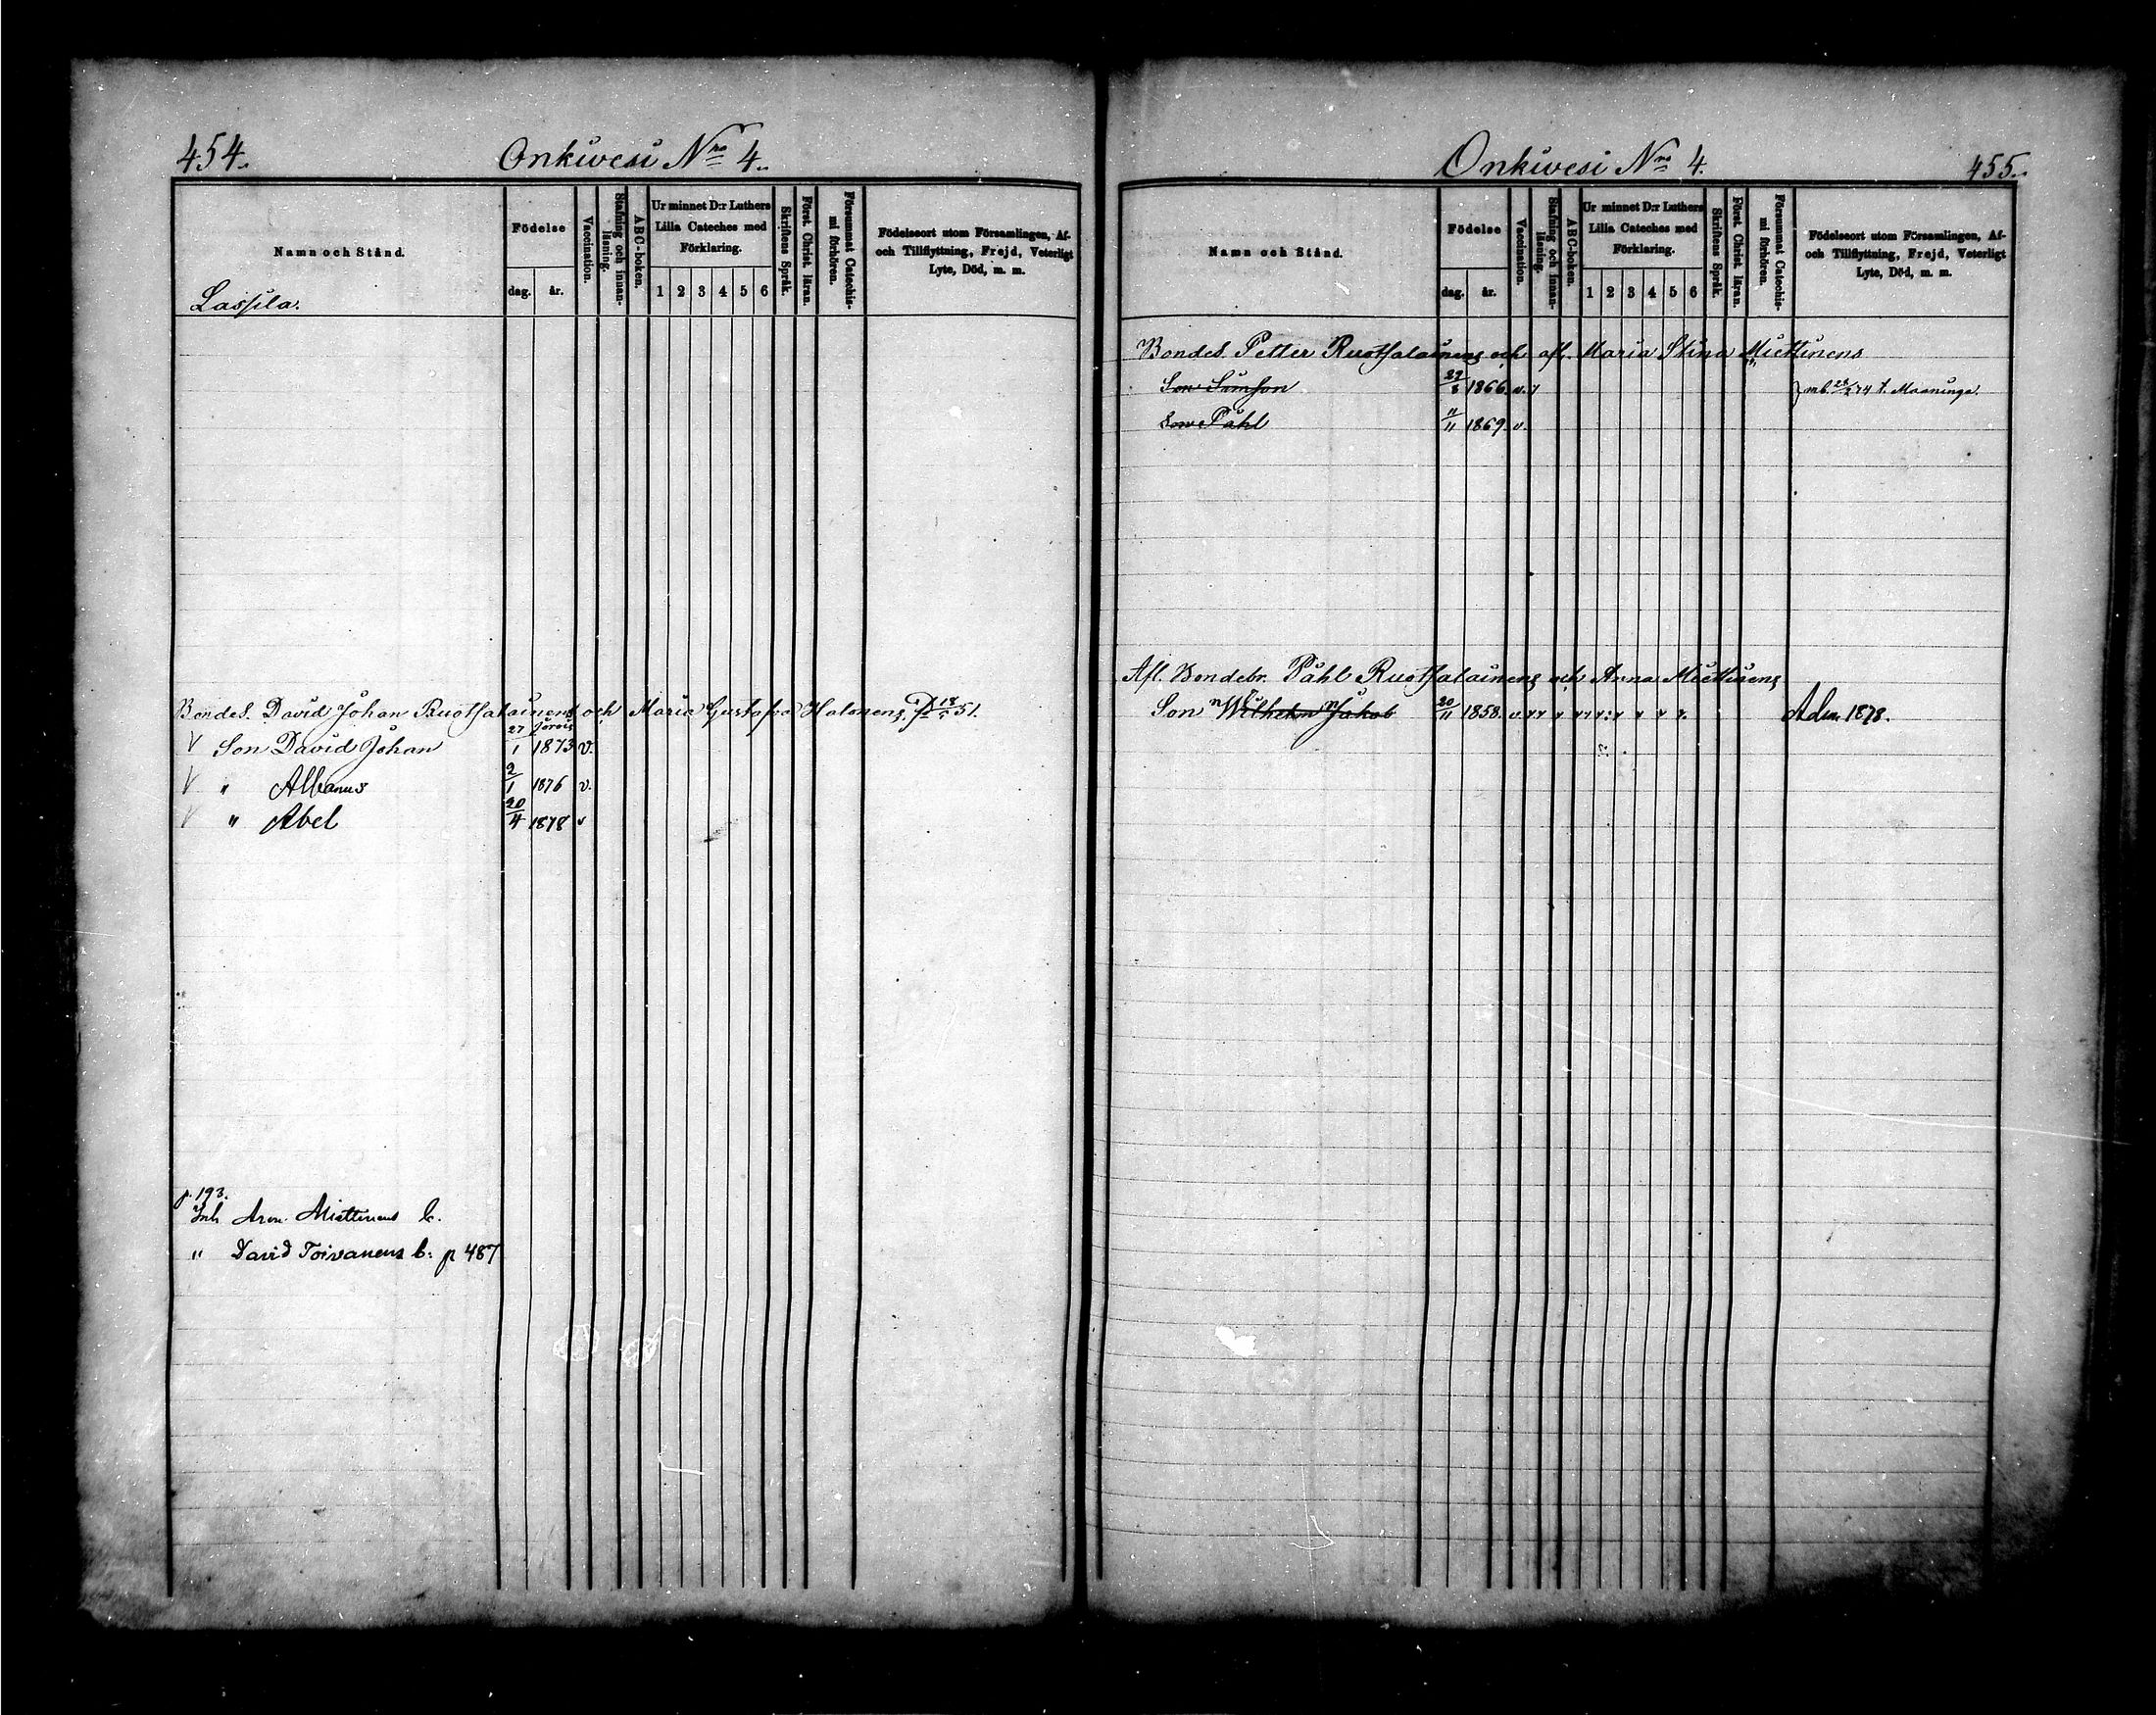 454.
Onkivesi Nro 4.
Namn och Stånd.
Födelse
dag.
år.
Vaccination.
Stafning och innan-läsning.
ABC-boken.
Ur minnet D:r Luthers
Lilla Cateches med
Förklaring.
1 2 3 4 5 6
Skriftens Språk.
Föret. Christ. läran.
Försummat Catechis-mi förhören.
Födelseort utom Församlingen, Af-
och Tillflyttning, Frejd, Veterligt
Lyte, Död, m. m.
Lassila.
Bondes. David Johan Ruotsalainens och Maria Gustafva Halonens, f. 51.
V Son David Johan 27/1 1873 v.
V " Albanus 2/1 1876 v.
V " Abel 20/4 1878 v
p. 193.
Inh. Miettinens b.
" David Toivanens b: p 487
Onkivesi Nro 4.
455.
Namn och Stånd.
Födelse
dag.
år.
Vaccination.
Stafning och innan-läsning.
ABC-boken.
Ur minnet D:r Luthers
Lilla Cateches med
Förklaring.
1 2 3 4 5 6
Skriftens Språk.
Föret. Christ. läran.
Försummat Catechis-mi förhören.
Födelseort utom Församlingen, Af-
och Tillflyttning, Frejd, Veterligt
Lyte, Död, m. m.
Bondes. Petter Ruotsalainens och afl. Maria Stina Miettinens
Son Simson 1866. v. 74 t. Maaninga.
Son Påhl 11/11 1869. v.
Afl. Bondebr. Påhl Ruotsalainens och Anna Miettinens
Son Wilhelm Jakob 20/11 1858. v. Adm. 1878.